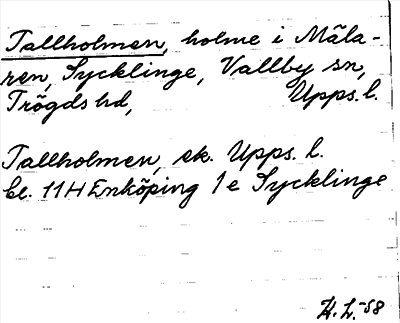 Tallholmen, holme i Mäla-
ren, Sycklinge, Vallby sn,
Trögds hd, Upps. l.
Tallholmen, ek. Upps. l.
bl. 11H Enköping 1e Sycklinge
H. L. -58